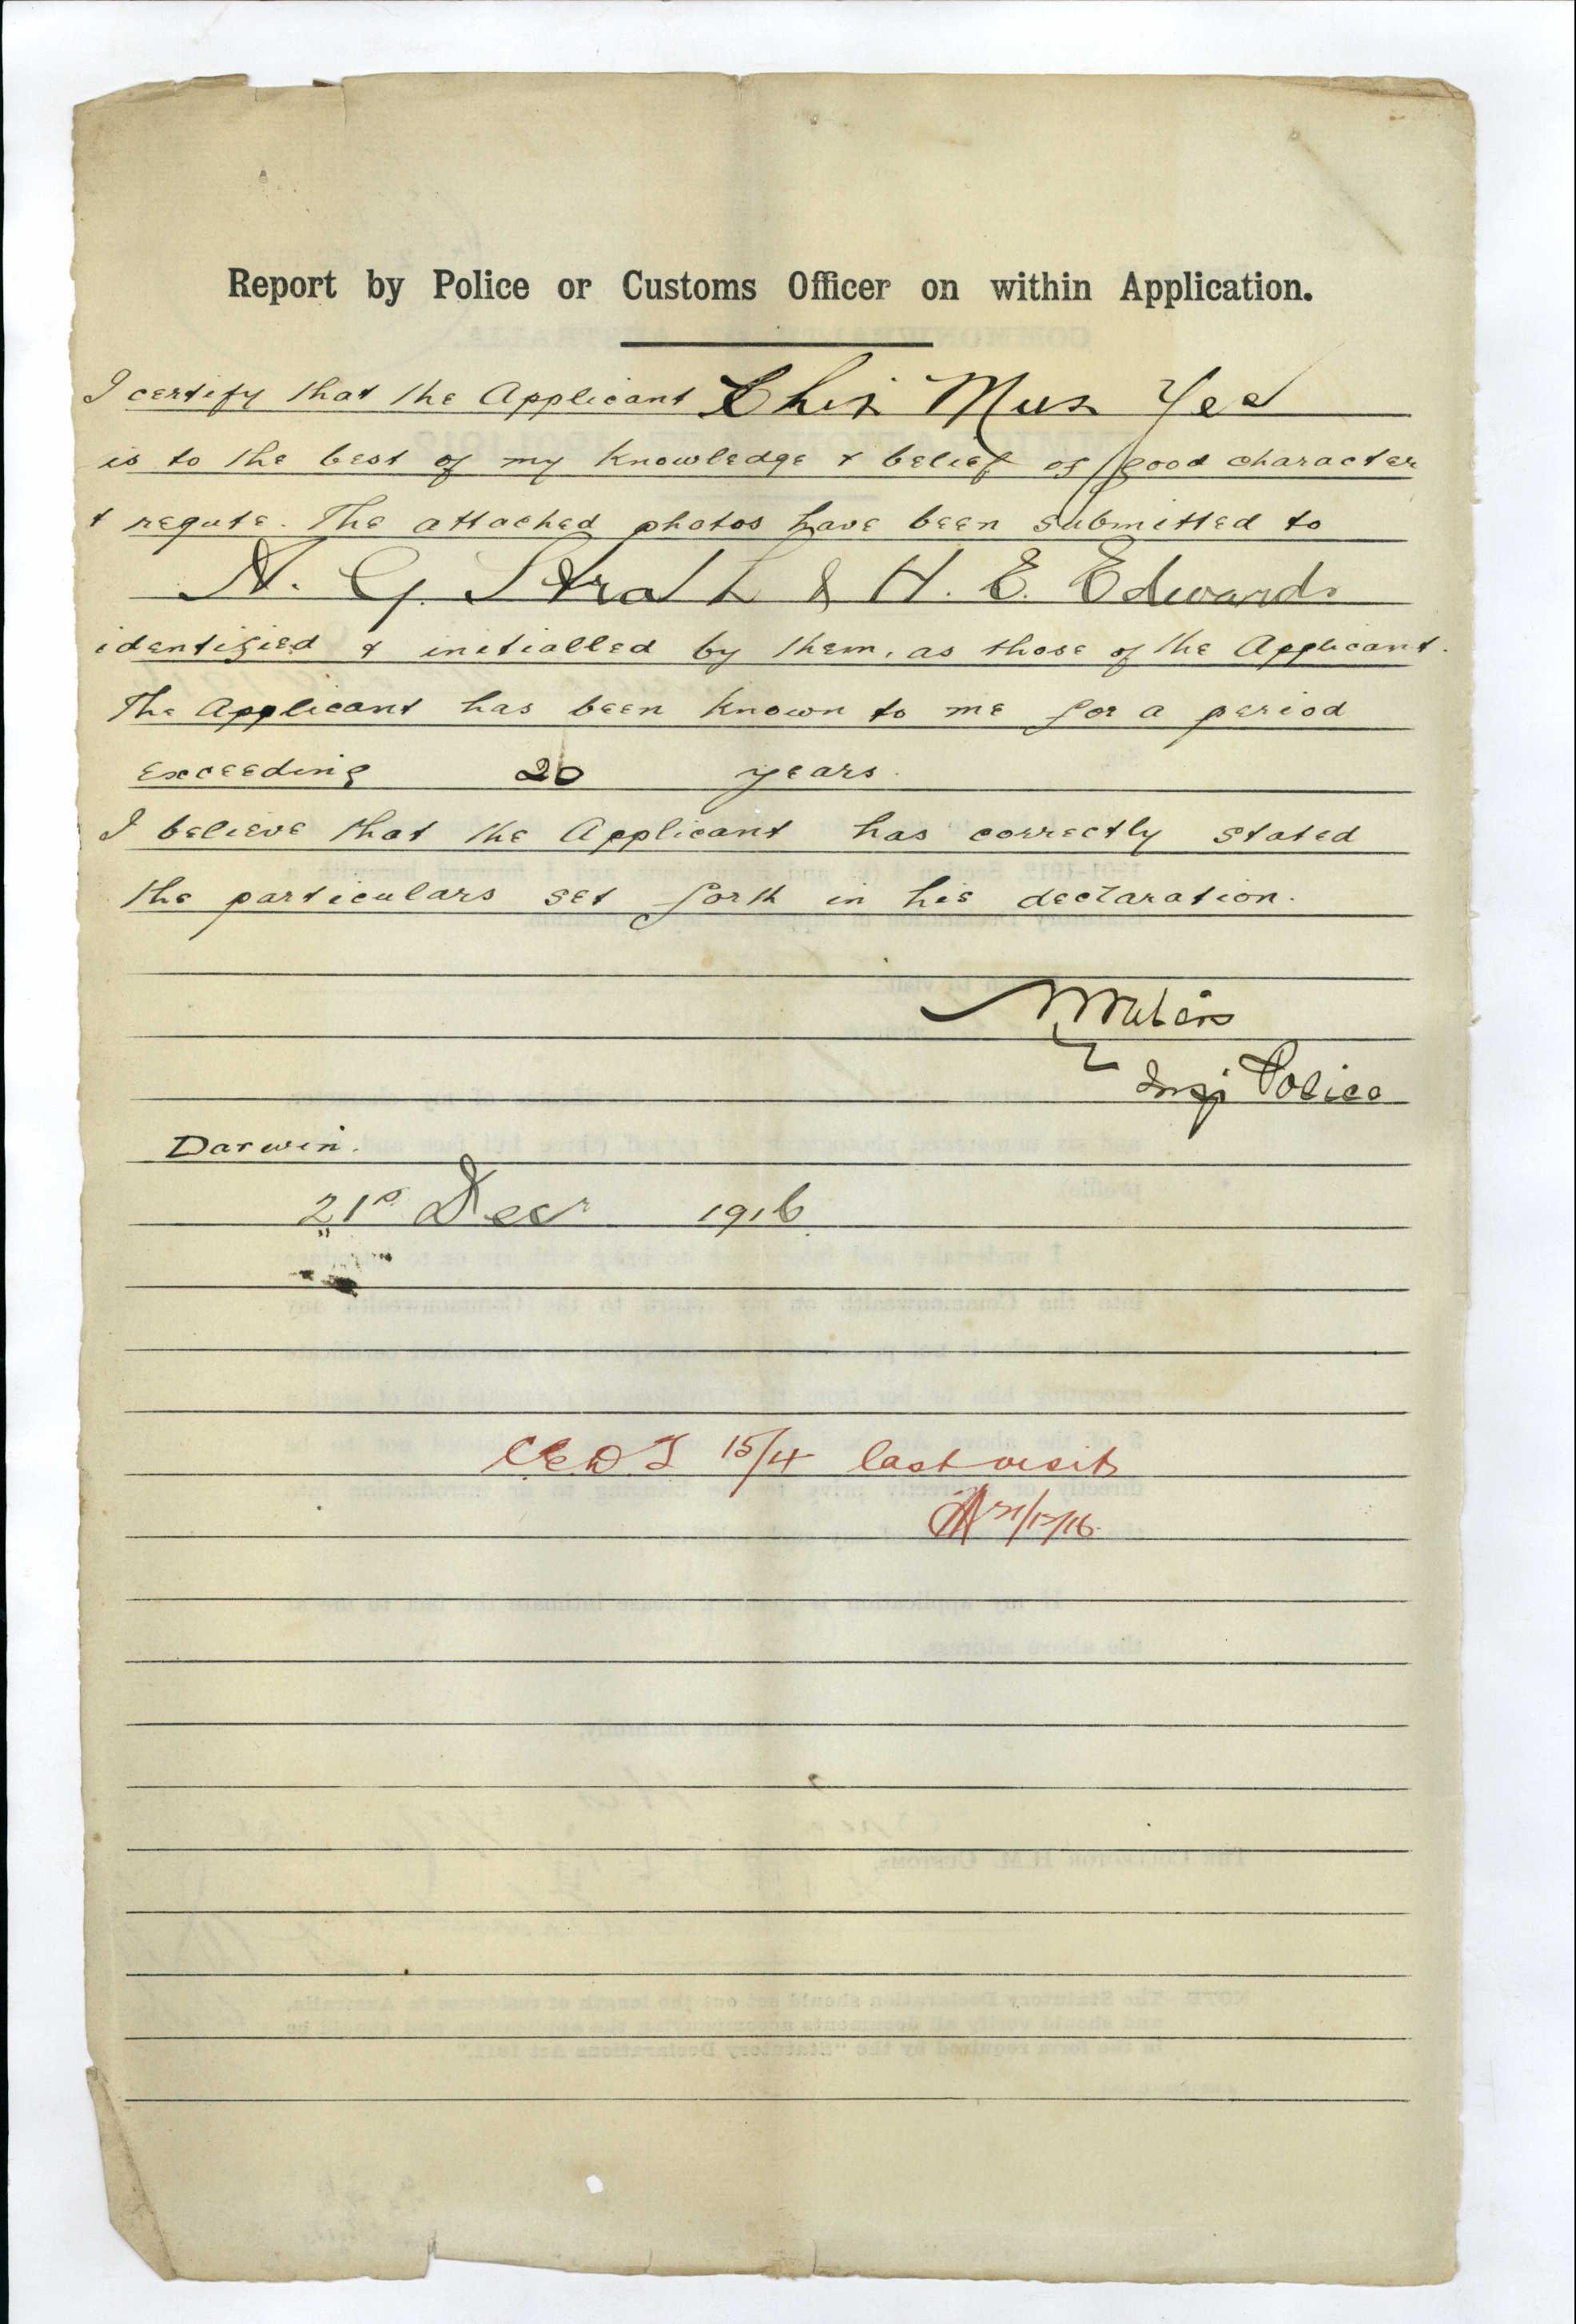 Report by Police or Customs Officer on within Application.
I certify that the Applicant Chin Mun Yee
is to the best of my knowledge & belief of good character
& repute. The attached photos have been submitted to
A. G. Strath & H. E. Edwards
identified & initialled by them, as those of the Applicant.
The Applicant has been known to me for a period
exceeding 20 years.
I believe that the Applicant has correctly stated
the particulars set forth in his declaration.
Insp Police
Darwin.
21st Decr 1916
CEDT 15/4 last visit
21/12/16